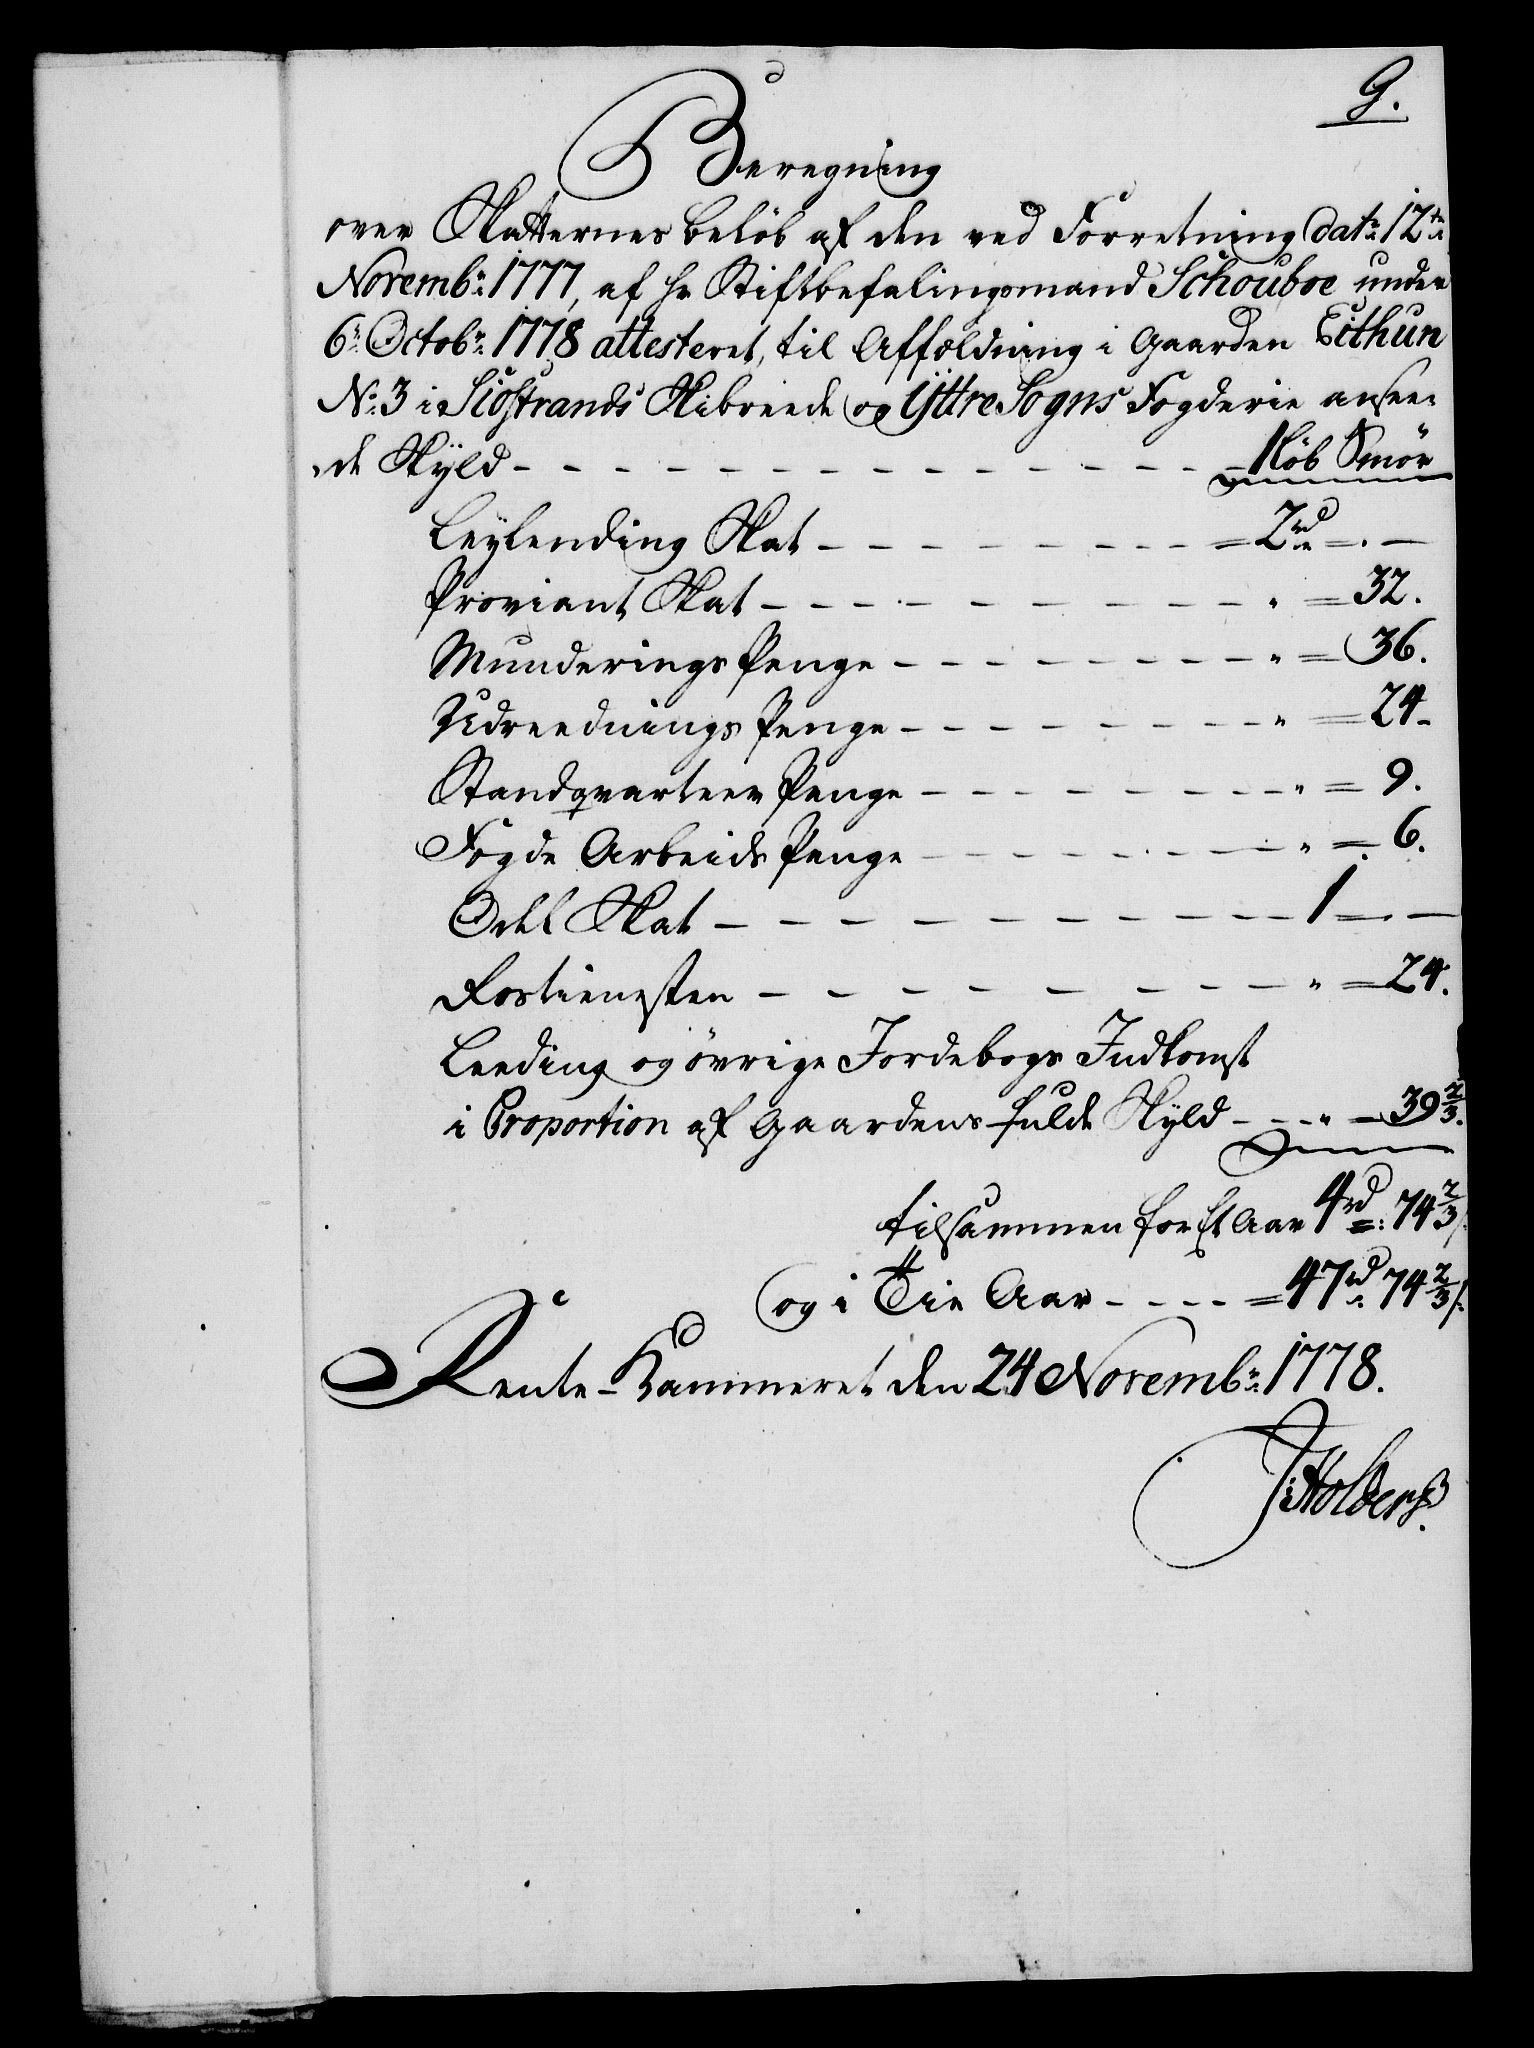 G.
Beregning
over Skatternes beløb af den ved Forretning dat: 12te
Novembr: 1777, af hr Stiftbefalingsmand Schouboe under
6te Octobr: 1778 attesteret, til Affældning i Gaarden Eithun
No: 3 i Siøstrands Skibreede og Ÿttre Sogns Fogderie ansee-
de Skÿld - - - 1 Løb Smør
Leÿlending Skat - - - 2rd = . —
Proviant Skat - - - " = 32.
Munderings Penge - - - " = 36.
Udreednings Penge - - - " = 24.
Standqvarteer Penge - - - " = 9.
Fogde Arbeids Penge - - - " = 6.
Odel Skat - - - 1 = . —
Rostienesten - - - " = 24.
Leeding og øvrige Jordebogs Indkomst
i Proportion af Gaardens fulde Skÿld - - - " = 39 2/3.
tilsammen for Et Aar 4rd: 74 2/3 s:
og i Tie Aar - - - = 47rd: 74 2/3 s:
Rente-Kammeret den 24 Novembr: 1778.
J: Holbers.